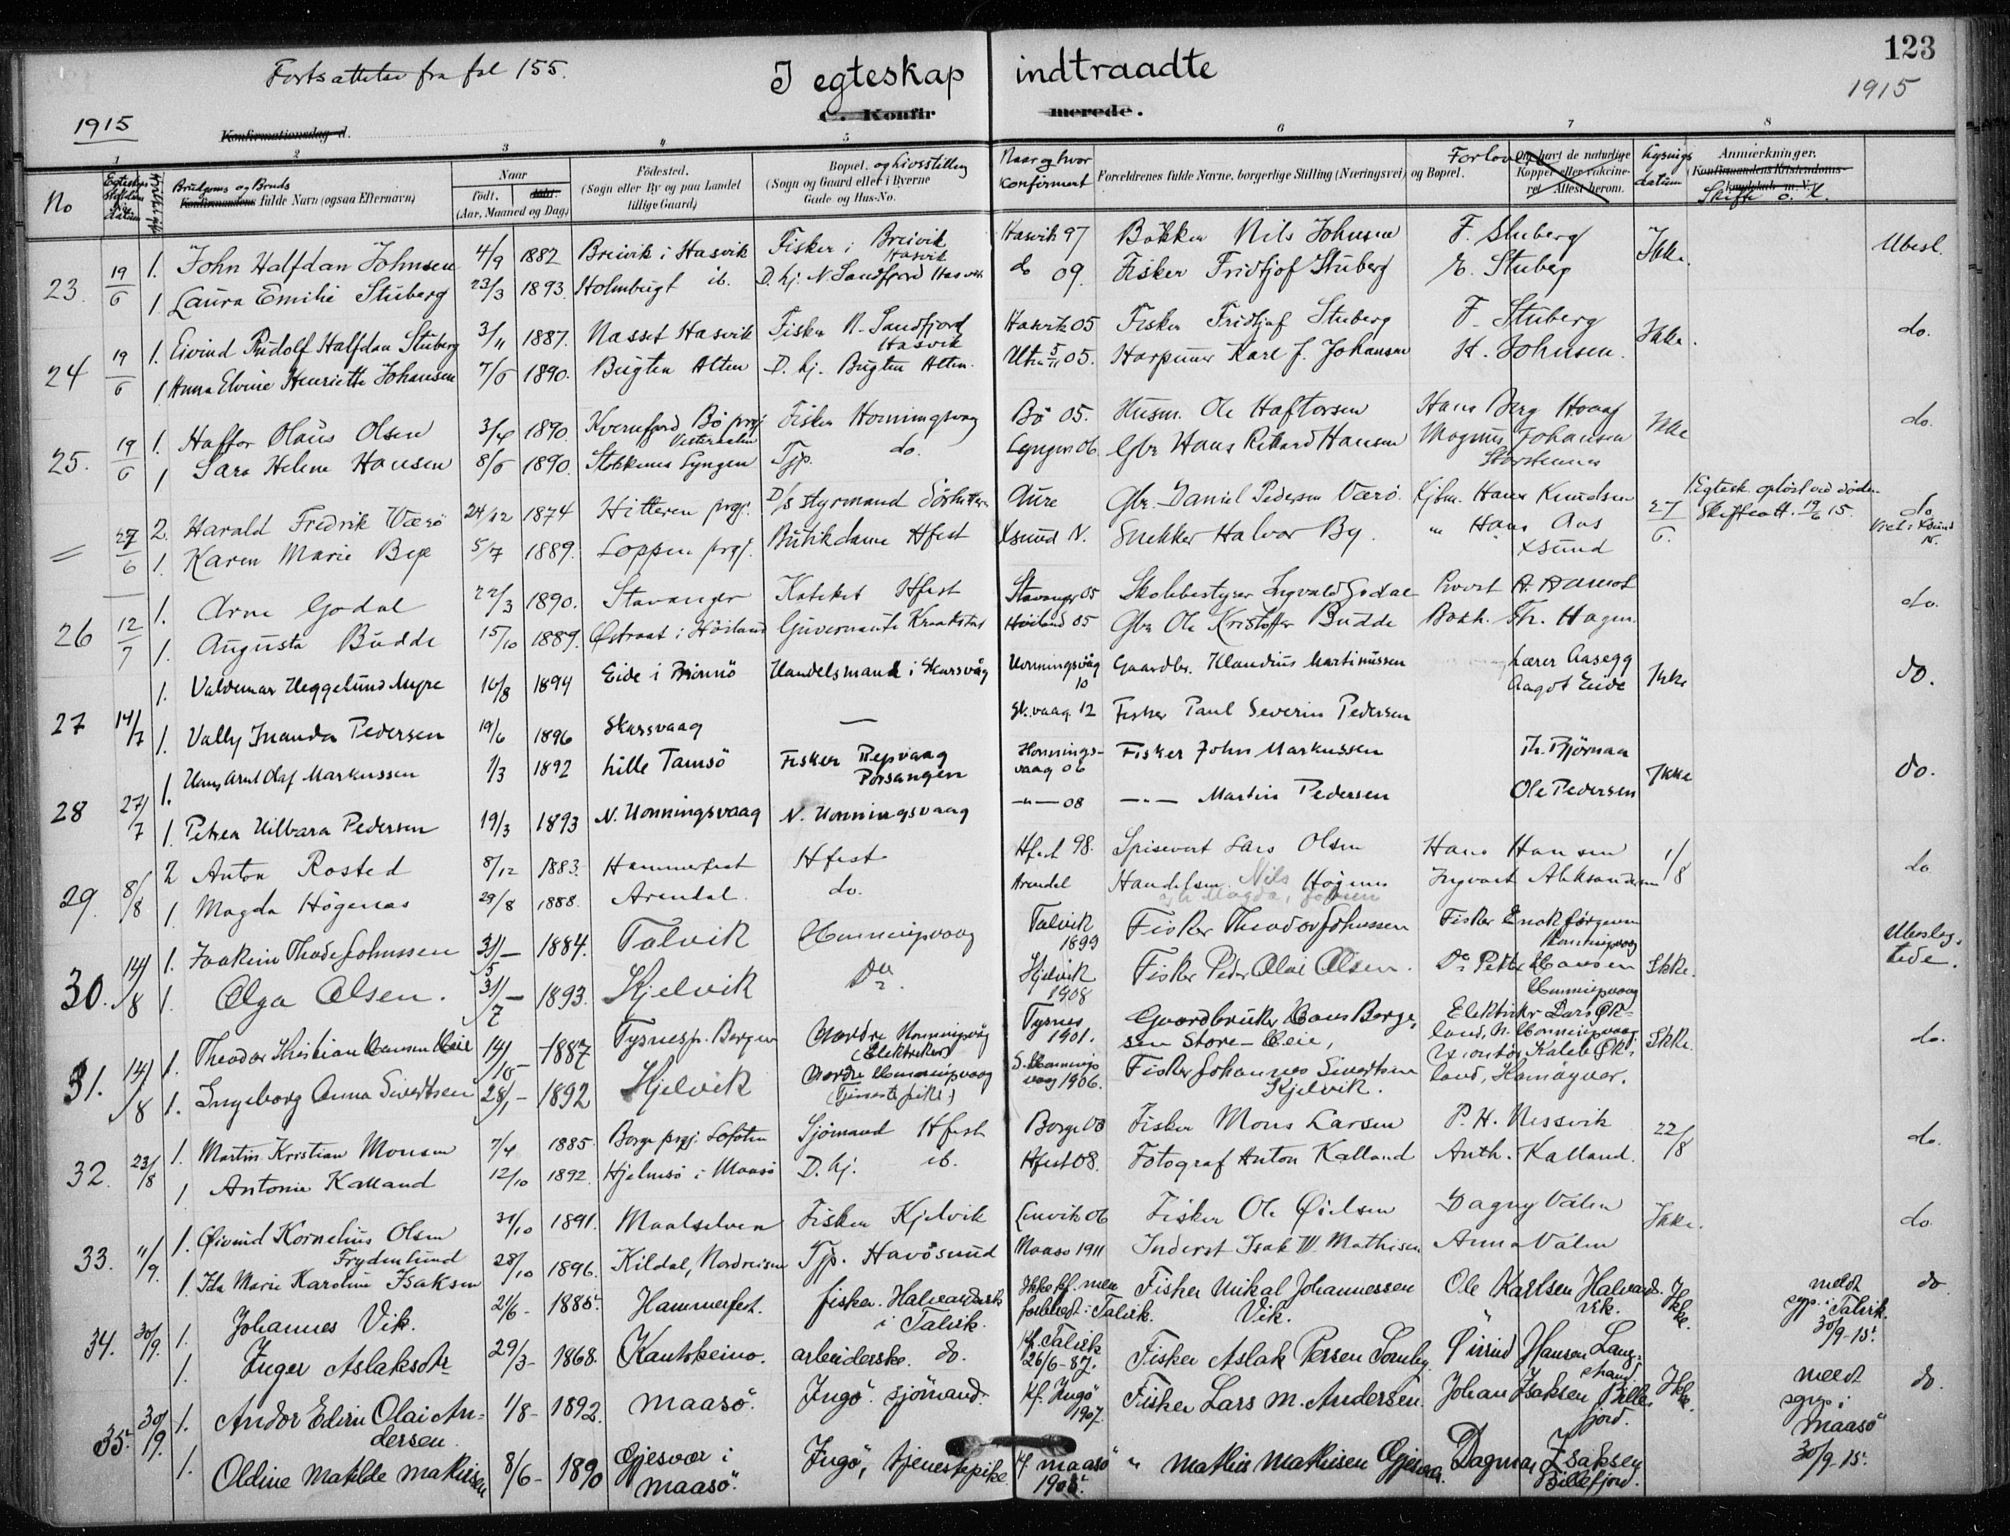 123
Fortsættelse fra fol 155.
I egteskap indtraadte
1915
1915
C. Konfirmerede.
Konfirmationsdag d.
1 2 3 4 5 6 7 8
No
Brudgoms og Bruds
Konfirmandens fulde Navn (ogsaa Efternavn)
Naar
Født.
(Aar, Maaned og Dag)
Fødested.
(Sogn eller By og paa Landet tillige Gaard)
Bopæl. og Livsstilling
(Sogn og Gaard eller i Byerne Gade og Hus-No.
Naar og hvor konfirmert
Forældrenes fulde Navne, borgerlige Stilling (Næringsvei) og Bopæl.
Forlovere
Om havt de naturlige Kopper eller vakcineret. Attest herom.
Lysnings datum
Anmærkninger.
(Konfirmandens Kristendomskundskab m. V.)
Skifte o. l.
23. 19/6 1. John Halfdan Johnsen 4/9 1882 Breivik i Hasvik Fisker i Breivik Hasvik Hasvik 97 Bökker Nils Johnsen F. Stuberg Ikke. Ubesl.
1 Laura Emilie Stuberg 23/3 1893 Holmbugt ib. D. hj. N. Sandfjord Hasvik do 09. Fisker Fridtjof Stuberg E. Stuberg
24 19/6 1. Eivind Rudolf Halfdan Stuberg 3/11 1887. Nasset Hasvik Fisker N. Sandfjord Hasvik Hasvik 05 Fisker Fridtjof Stuberg F. Stuberg Ikke. do.
1 Anna Elvine Henriette Johansen 7/6 1890. Bugten Alten D. hj. Bugten Alten. 05. Harpuner Karl J. Johansen H. Johnsen.
25. 19/6 1. Haftor Olaus Olsen 3/4 1890. Bö prgj Vesteraalen Fisker Honningsvaag Bö 05. Husm. Ole Haftorsen Hans Berg Ikke do.
1 Sara Helene Hansen 8/6 1890. Stokkenes Lyngen Tjp. do. Lyngen 06 Gbr Hans Rikard Hansen Magnus Johansen
= 27/6 2. Harald Fredrik Værö 24/12 1874 Hitteren prgj. D/s styrmand Aure Gbr. Daniel Pedersen Værö Kjbm. Hans Knudsen 27/6. Egtesk. oplöst ved döden Skifteatt. 19/6 15. do
1. Karen Marie Bye 5/7 1889. Loppen prgj. Butikdame Hfest Xsund N. Snekker Halvor By. " Hans Aas Xsund Viet i Xsund N.
26 12/7 1. Arne Godal 22/3 1890. Stavanger Kateket Hfest Stavanger 05 Skolebestyrer Ingvald Godal Provst A. do.
1. Augusta Budde 15/10 1889. Østraat i Höiland Guvernante Kraakstad Höiland 05 Gbr Ole Kristoffer Budde Bokh. Th. Hagen
27 14/7 1. Valdemar Heggelund Myre 10/8 1894 Eide i Brönnö Handelsmand i Skarsvåg Honningsvåg 10 Gaardbr. Klaudius Martinussen Lærer Aasegg Aagot Eide Ikke do.
1. Vally Inanda Pedersen 19/6 1896 Skarsvaag — Sk.vaag. 12 Fisker Paul Severin Pedersen
28 27/7 1. Hans Arnt Olaf Markussen 1/3 1892 Lille Tamsö Fisker Repvaag Porsangen Honningsvaag 06 Fisker John Markussen Th. Björnaa Ikke do.
1. Petrea Hilbara Pedersen 19/3 1893 N. Honningsvaag N. Honningsvaag —"— 08 —"— Martin Pedersen Ole Pedersen
29. 8/8 2 Anton Rosted 8/12 1883. Hammerfest Hfest Hfest 98. Spisevert Lars Olsen Hans Hansen 1/8 do.
1. Magda Högenas 29/8 1888. Arendal. do. Arendal Handelsm. Nils Ingvart Aleksandersen
30. 14/8 1. Joakim Thode Johnssen 31/5 — 1884. Talvik Honningsvaag Talvik 1899 Fisker Theodor Johnssen Fisker Enok Jörgensen Honningsvaag Ikke. Ubeslægtede.
1. Olga Olsen. 31/7 — 1893. Kjelvik Do. Kjelvik 1908 Fisker Peder Olai Olsen. Do Petter Hansen Honningsvaag
31. 14/8 1. Theodor Kristian Hansen Heie 14/10 - 1887 Tysnes p. Bergen Nordre Honningsvåg (Elektriker) Tysnes 1901. Gaardbruker Hans Børgesen Store-Heie, Elektriker Lars Økland, N. Honningsvaag Ikke. do.
1. Ingeborg Anna Sivertsen 28/1 - 1892 Kjelvik Nordre Honningsvaag (Tjenestepike) S. Honningsvaag 1906. Fisker Johannes Sivertsen Kjelvik. Kaleb Økland, Hamøyvær.
32. 23/8 1. Martin Kristian Monsen 7/4 1885 Borge prgj. Lofoten Sjömand Hfest Borge 00 Fisker Mons Larsen P. H. Nessvik 22/8 do.
1 Antonie Kalland 12/10 1892. Hjelmsö i Maasö D. hj. ib. Hfest 08. Fotograf Anton Kalland Anth. Kalland.
33. 11/9. 1. Øivind Kornelius Olsen Frydenlund 31/10 1891. Maalselven Fisker Kjelvik Lenvik 06 Fisker Ole Dagny Valen Ikke. do.
1. Ida Marie Karoline Isaksen 28/10 1896. Kildal, Nordreisen Tjp. Havösund Maasö 1911 Inderst Isak W. Mathisen Anna Valen
34. 30/9. 1. Johannes Vik. 21/6- 1885. Hammerfest. fisker. Halvardsvik i Talvik. Ikke kf. men forberedt i Talvik. Fisker Mikal Johannessen Vik. Ole Karlsen Halvardsvik. Ikke. meldt sgp. i Talvik. 30/9-15. do
1. Inger Aslaksdtr 29/3- 1868. Kautokeino. arbeiderske. do. kf. Talvik 26/6-87. Fisker Aslak Persen Sombg. Øivind Hansen Langstrand.
35. 30/9. 1. Andor Edvin Olai Andersen 1/8- 1892. Maasö. Ingö. sjömand. kf. Ingö 1907. Fisker Lars M. Andersen. Johan Isaksen Billefjord. Ikke. meldt sgp. i Maasö 30/9-15. do.
1. Oldine Matilde Mathisen 8/6- 1890 Gjesvær i Maasö. Ingö, tjenestepike kf Maasö 1905. " Mathis Mathisen Gjesvær Dagmar Isaksen Billefjord.